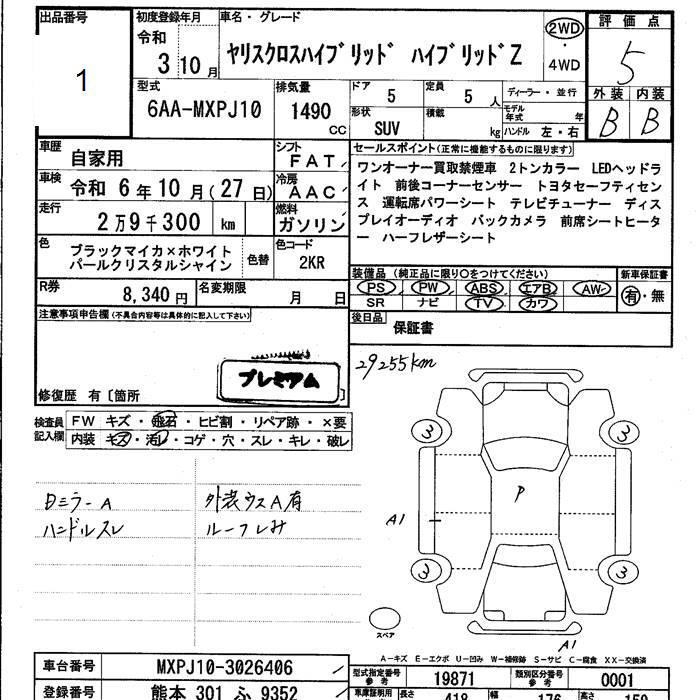 出品番号
1
初度登録年月
令和
3 10 月
車名・グレード
ヤリスクロスハイブリッド ハイブリッドZ
2WD
・
4WD
評価点
5
外装 内装
B B
型式
6AA-MXPJ10
排気量
1490
CC
ドア
5
定員
5 人
形状
SUV
積載
kg
ディーラー・並行
モデル年式 年
ハンドル 左・右
車歴
自家用
シフト
FAT
車検
令和 6年10月(27日)
冷房
AAC
走行
2万9千300 km
燃料
ガソリン
色
ブラックマイカ×ホワイト
パールクリスタルシャイン
色替
色コード
2KR
R券
8,340円
名変期限
月 日
セールスポイント(正常に機能するものに限ります)
ワンオーナー買取禁煙車 2トンカラー LEDヘッドラ
イト 前後コーナーセンサー トヨタセーフティセン
ス 運転席パワーシート テレビチューナー ディス
プレイオーディオ バックカメラ 前席シートヒータ
ー ハーフレザーシート
装備品(純正品に限り○をつけてください)
PS PW ABS エアB AW
SR ナビ TV カワ
新車保証書
有・無
後日品
保証書
注意事項申告欄(不具合内容等は具体的に記入して下さい)
プレミアム
修復歴 有〔箇所 〕
29255km
検査員
記入欄
FW キズ・飛石・ヒビ割・リペア跡・×要
内装 キズ・汚レ・コゲ・穴・スレ・キレ・破レ
日ミラーA
ハンドルスレ
外装ウスA有
ルーフしみ
3 3
P
A1
3 3
スペア
A1
A-キズ E-エクボ U-凹み W-補修跡 S-サビ C-腐食 XX-交換済
車台番号
MXPJ10-3026406
型式指定番号
参考
19871
類別区分番号
参考
0001
登録番号
熊本 301 ふ 9352
車庫証明用
長さ
418
幅
176
高さ
159